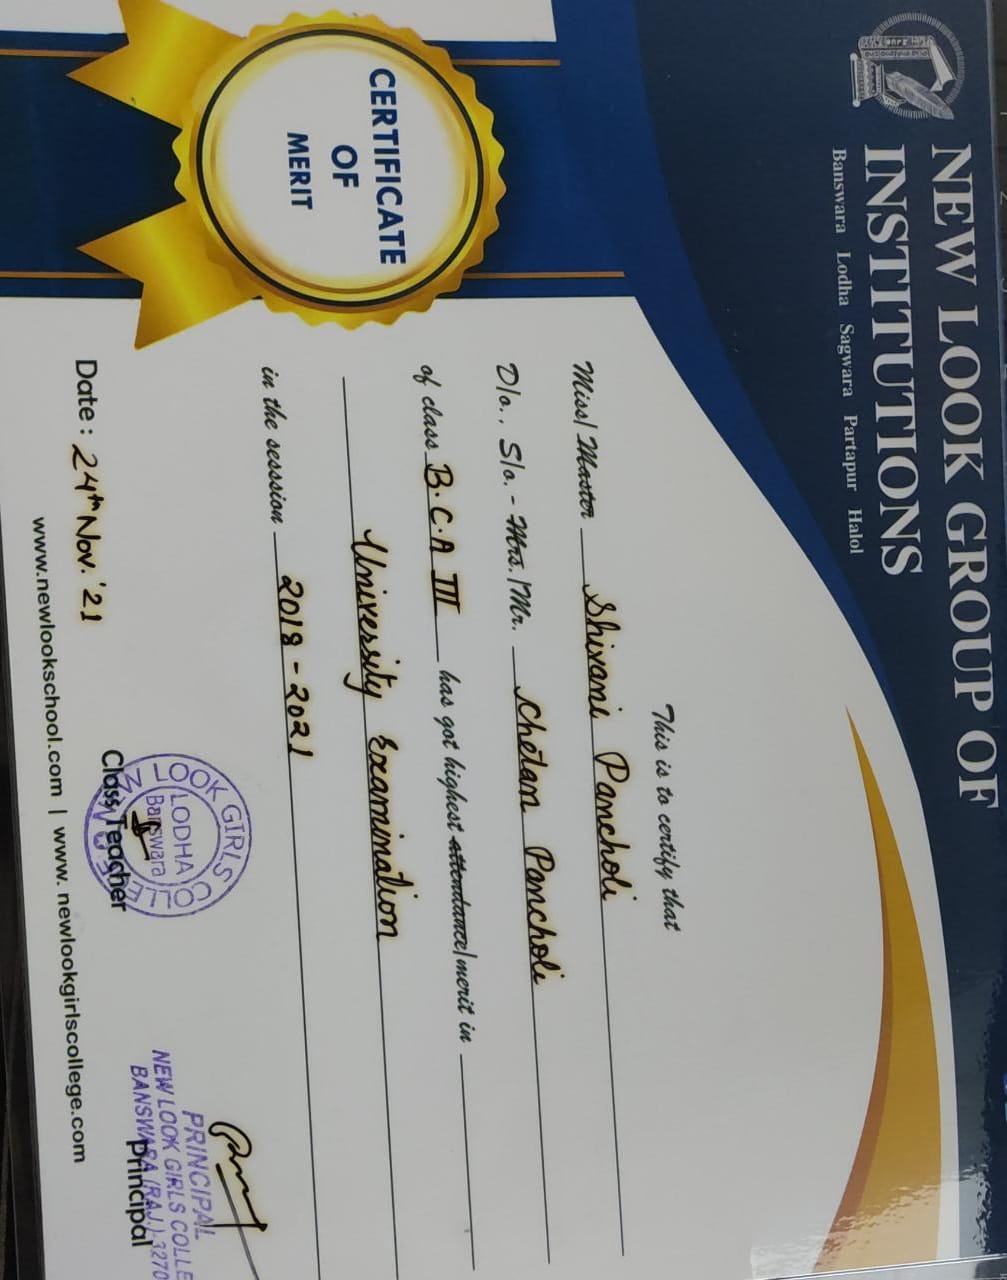 NEW LOOK GROUP OF
INSTITUTIONS
Banswara Lodha Sagwara Partapur Halol
CERTIFICATE
OF
MERIT
This is to certify that
Miss/ Master Shivani Pancholi
D/o., S/o. - Mrs./Mr. Chetan Pancholi
of class B.C.A III has got highest attendance/merit in
University Examination
in the sesssion 2018-2021
Date: 24th Nov.'21
LOOK GIRLS COLLEGE
LODHA
Banswara
Class Teacher
PRINCIPAL
NEW LOOK GIRLS COLLE
BANSWARA (RAJ.)-3270
Principal
www.newlookschool.com | www. newlookgirlscollege.com